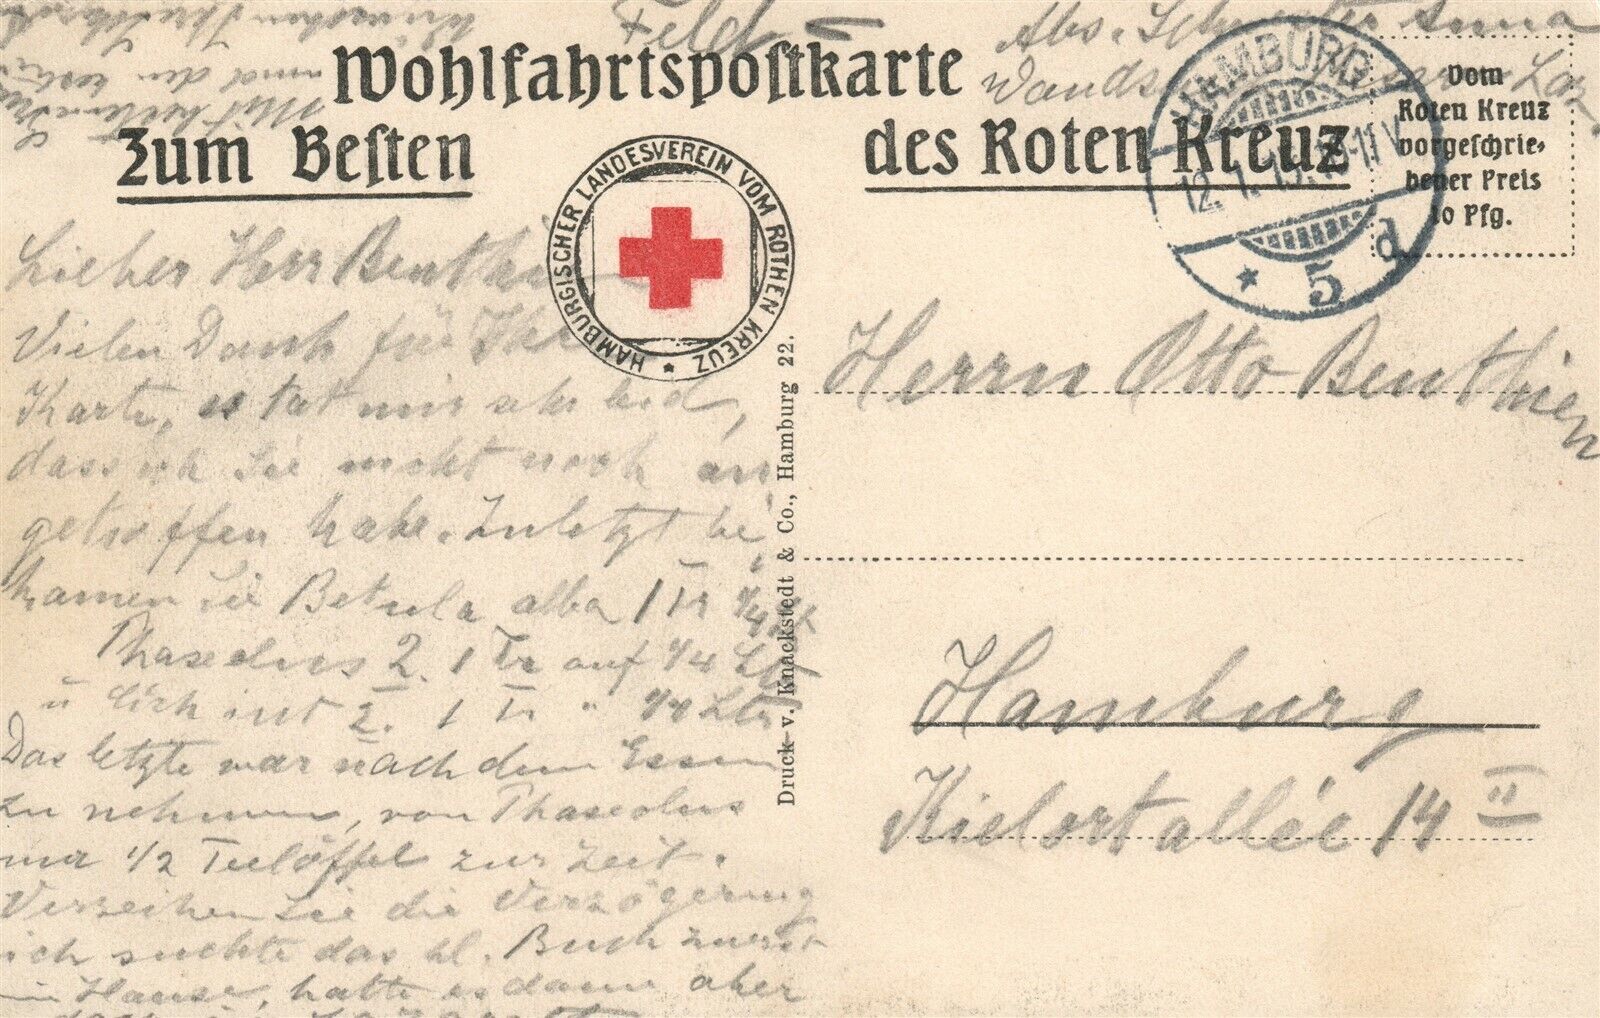 Feld
Abs. Schwester Anna
Wands
Wohlfahrtspostkarte
Zum Besten
des Roten Kreuz
HAMBURGISCHER LANDESVEREIN VOM ROTHEN KREUZ
HAMBURG
12.1.15.
* 5 d
Vom
Roten Kreuz
vorgeschrie-
bener Preis
10 Pfg.
Lieber Herr Benthien
Vielen Dank für Ihre
Karte, es tat mir sehr leid,
dass ich Sie nicht noch an
getroffen habe. Zuletzt be
kamen Sie Betula alba 1 Tr 1/4 Ltr
Phaseolus 2. 1 Tr auf 1/4 Ltr
u 2. 1 Tr " 1/4 Ltr
Das letzte war nach dem Essen
zu nehmen, von Phaseolus
nur 1/2 Teelöffel zur Zeit.
Verzeihen Sie die Verzögerung
ich suchte das kl. Buch zuerst
im Hause, hatte es dann aber
Druck v. Knackstedt & Co., Hamburg 22.
Herrn Otto Benthien
Hamburg
Kielortallée 14 II